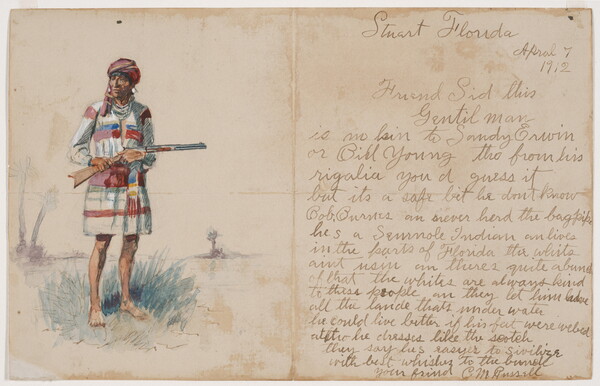 Stuart Florida
April 7
1912
Friend Sid this
Gentil man
is no kin to Sandy Erwin
or Bill Young tho from his
rigalia you d guess it
but its a safe bet he dont know
Bob Burnes an never herd the bag pipe
hes a Semnole Indian an lives
in the parts of Florida the whits
aint usin an theres quite a bunch
of that the whites are always kind
to these people an they let him have
all the lande thats under water
he could live better if his feet were webed
altho he dresses like the scotch
they say hes easier to sivilize
with best whishes to the bunch
your frind C M Russell